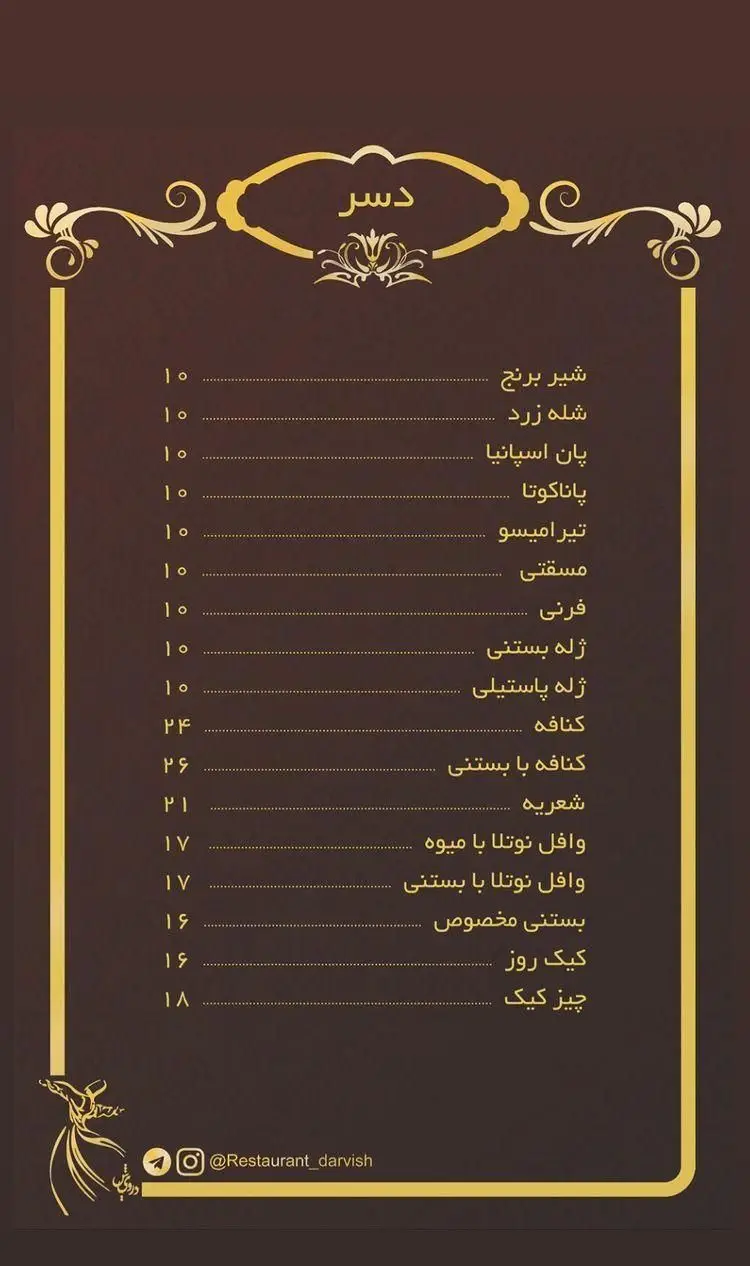 دسر
شیر برنج ۱۰
شله زرد ۱۰
پان اسپانیا ۱۰
پاناکوتا ۱۰
تیرامیسو ۱۰
مسقتی ۱۰
فرنی ۱۰
ژله بستنی ۱۰
ژله پاستیلی ۱۰
کنافه ۲۴
کنافه با بستنی ۲۶
شعریه ۲۱
وافل نوتلا با میوه ۱۷
وافل نوتلا با بستنی ۱۷
بستنی مخصوص ۱۶
کیک روز ۱۶
چیز کیک ۱۸
@Restaurant_darvish
درویش